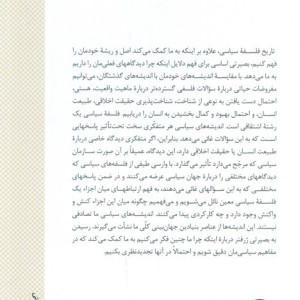 تاریخ فلسفهٔ سیاسی، علاوه بر اینکه به ما کمک می‌کند اصل و ریشهٔ خودمان را
فهم کنیم، بصیرتی اساسی برای فهم دلایل اینکه چرا دیدگاههای فعلی‌مان را داریم
به ما می‌دهد. با مقایسهٔ اندیشه‌های خودمان با اندیشه‌های گذشتگان، می‌توانیم
مفروضات حیاتی دربارهٔ سؤالات فلسفی گسترده‌تر دربارهٔ ماهیت واقعیت، هستی،
احتمال دست یافتن به نوعی از شناخت، شناخت‌پذیری حقیقت اخلاقی، طبیعت
انسان، و احتمال بهبود و کمال بخشیدن به انسان را دریابیم. فلسفهٔ سیاسی یک
رشتهٔ اشتقاقی است. اندیشه‌های سیاسی هر متفکری سخت تحت‌تأثیر پاسخهایی
است که به این سؤالات غائی می‌دهد. بنابراین، اگر متفکری دیدگاه خاصی دربارهٔ
طبیعت انسان یا حقیقت اخلاقی دارد، این دیدگاه عمیقاً بر آن صورت سازمان
سیاسی که مرجح می‌دارد تأثیر می‌گذارد. با وارسی طیفی از فلسفه‌های سیاسی که
دیدگاههای مختلفی را دربارهٔ جهان سیاسی عرضه می‌کنند و در ضمن پاسخهای
مختلفی که به این سؤالهای غائی می‌دهند، به فهم ارتباطهای میان اجزاء یک
فلسفهٔ سیاسی معین نائل می‌شویم و می‌فهمیم چگونه میان این اجزاء کنش و
واکنش وجود دارد و چه کارکردی پیدا می‌کنند. اندیشه‌های سیاسی ما تصادفی
نیستند. این اندیشه‌ها از عناصر بنیادین جهان‌بینی کلّی ما نشأت می‌گیرند. رسیدن
به بصیرتی ژرفتر دربارهٔ اینکه چرا ما چنین فکر می‌کنیم به ما کمک می‌کند که در
مفاهیم سیاسی‌مان دقیق شویم و احتمالاً در آنها تجدیدنظری بکنیم.